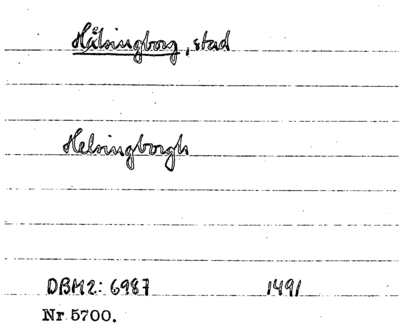 Hälsingborg, stad
Helsingborgh
DBM2: 6987 1491
Nr 5700.